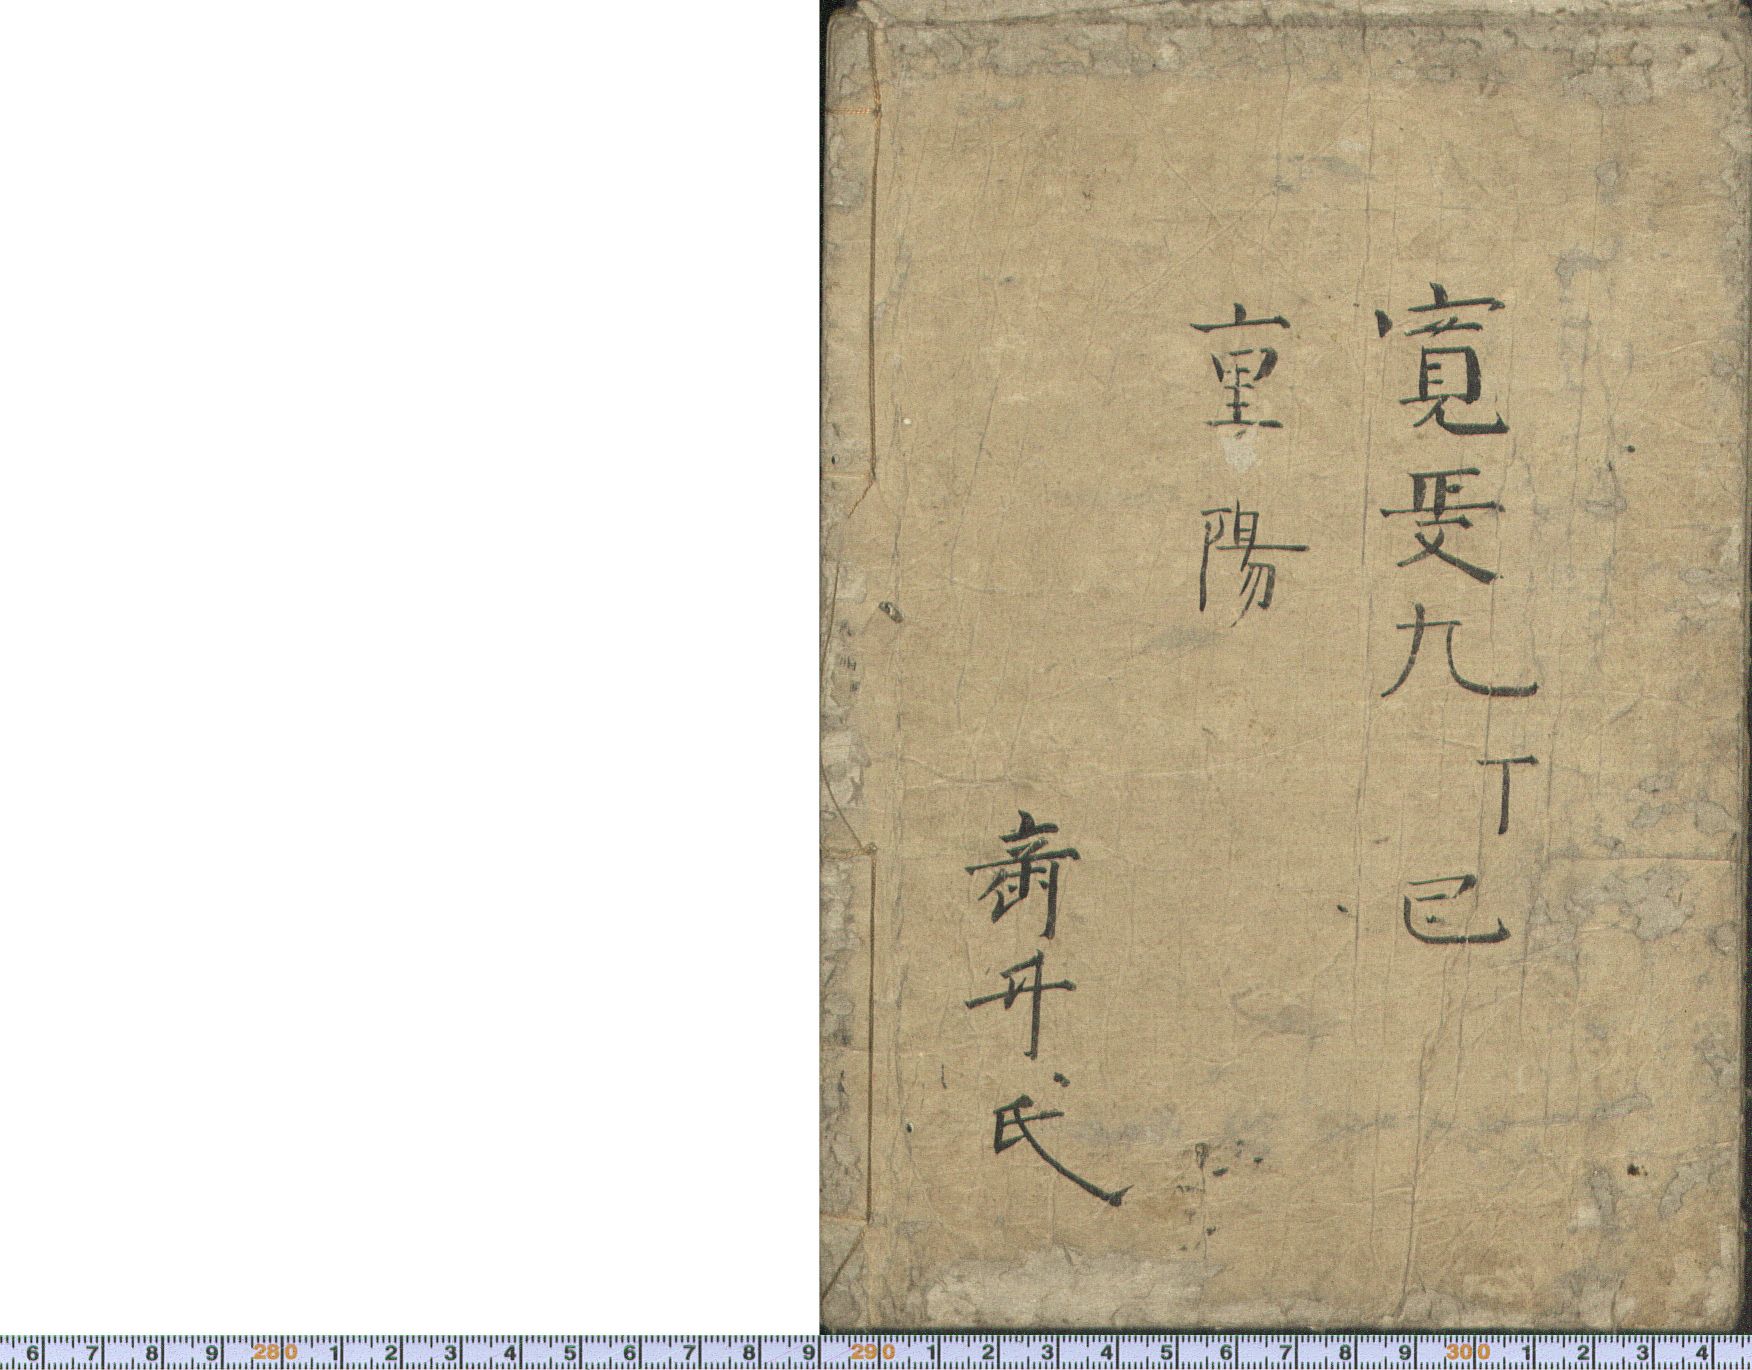 寛政九丁巳
重陽
新井氏
6 7 8 9 280 1 2 3 4 5 6 7 8 9 290 1 2 3 4 5 6 7 8 9 300 1 2 3 4